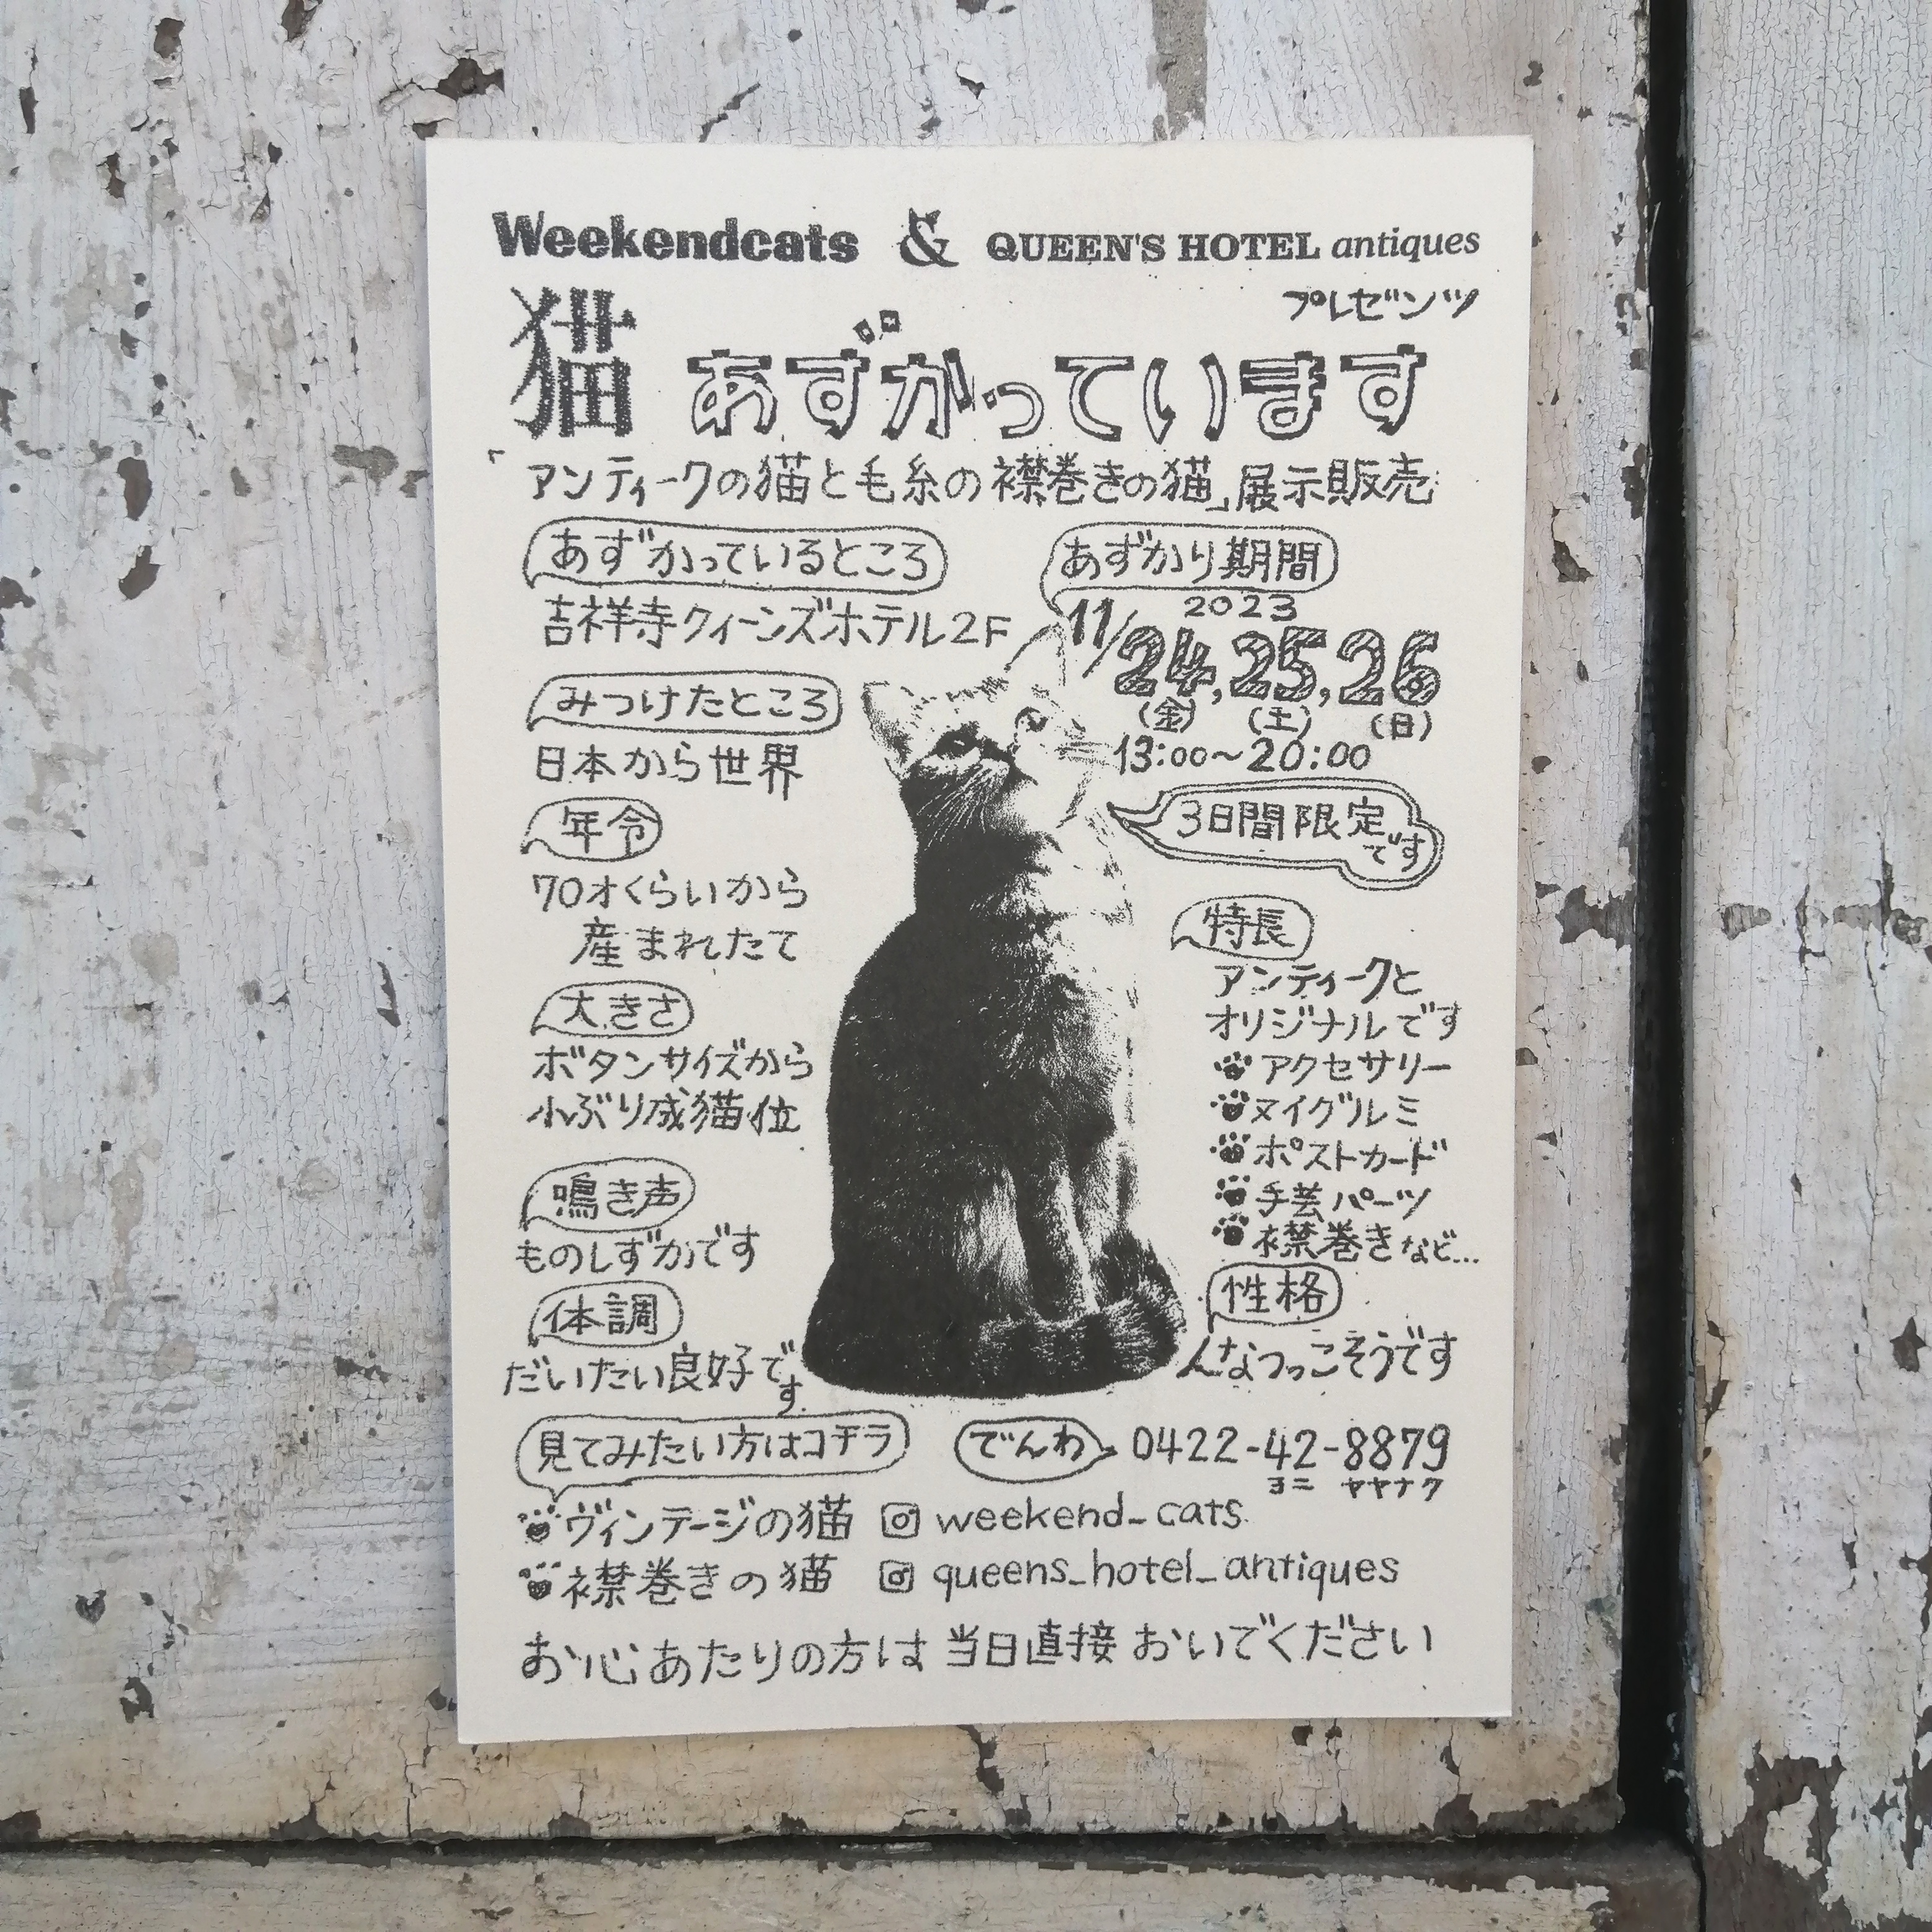 Weekendcats & QUEEN'S HOTEL antiques
プレゼンツ
猫 あずかっています
「アンティークの猫と毛糸の襟巻きの猫」展示販売
あずかっているところ
吉祥寺クィーンズホテル2F
あずかり期間
2023
11/24,25,26
(金) (土) (日)
13:00～20:00
3日間限定
です
みつけたところ
日本から世界
年令
70才くらいから
産まれたて
大きさ
ボタンサイズから
小ぶり成猫位
鳴き声
ものしずかです
体調
だいたい良好で
す.
特長
アンティークと
オリジナルです
アクセサリー
ヌイグルミ
ポストカード
手芸パーツ
襟巻きなど...
性格
んなつっこそうです
見てみたい方はコチラ
でんわ 0422-42-8879
ヨニ ヤヤナク
ヴィンテージの猫 weekend_cats
襟巻きの猫 queens_hotel_antiques
お心あたりの方は当日直接おいでください